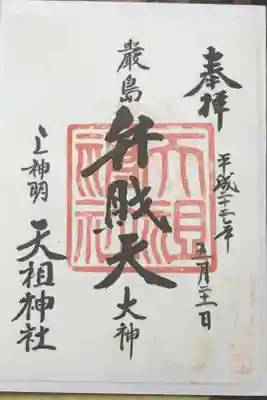 奉拝
平成二十七年
五月二十一日
厳島
弁財天
大神
天祖神社
上神明
天祖神社